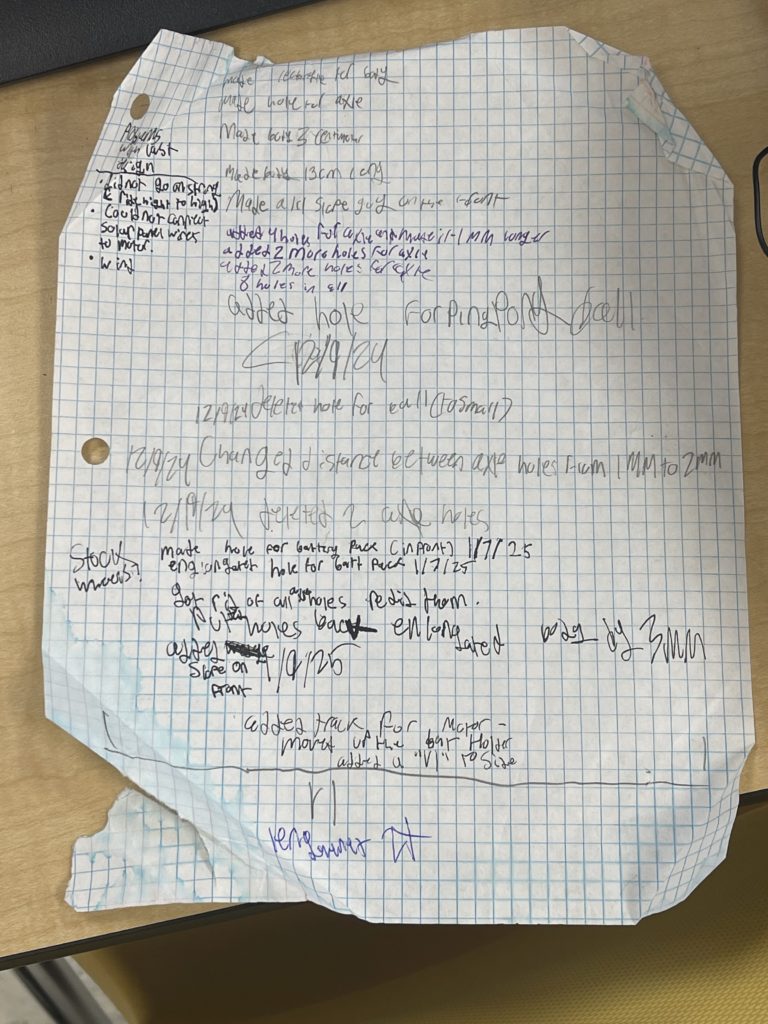 made rectangle for body
made hole for axle
Made body 3 centimeter
made body 13cm long
Made a slope guy on the front
Problems
with last
design
• did not go on string
(didn't right to high)
• Could not connect
solar panel wires
to motor.
• wind
added 4 holes for axle and made it 1-1 MM longer
added 2 more holes for axle
added 2 more holes for axle
8 holes in all
added hole For Ping Pong ball
12/9/24
12/9/24 deleted hole for ball (to small)
12/9/24 Changed distance between axle holes from 1 MM to 2mm
12/19/24 deleted 2 axle holes
Stock
wheels?
made hole for battery Pack (in front) 1/7/25
hole for batt Pack 1/7/25
got rid of all axle holes redid them.
Put holes back enlongated body by 3MM
added
Slope on
front
1/9/25
added track for Motor -
moved up the bat Holder
added a "V1" to Side
V1